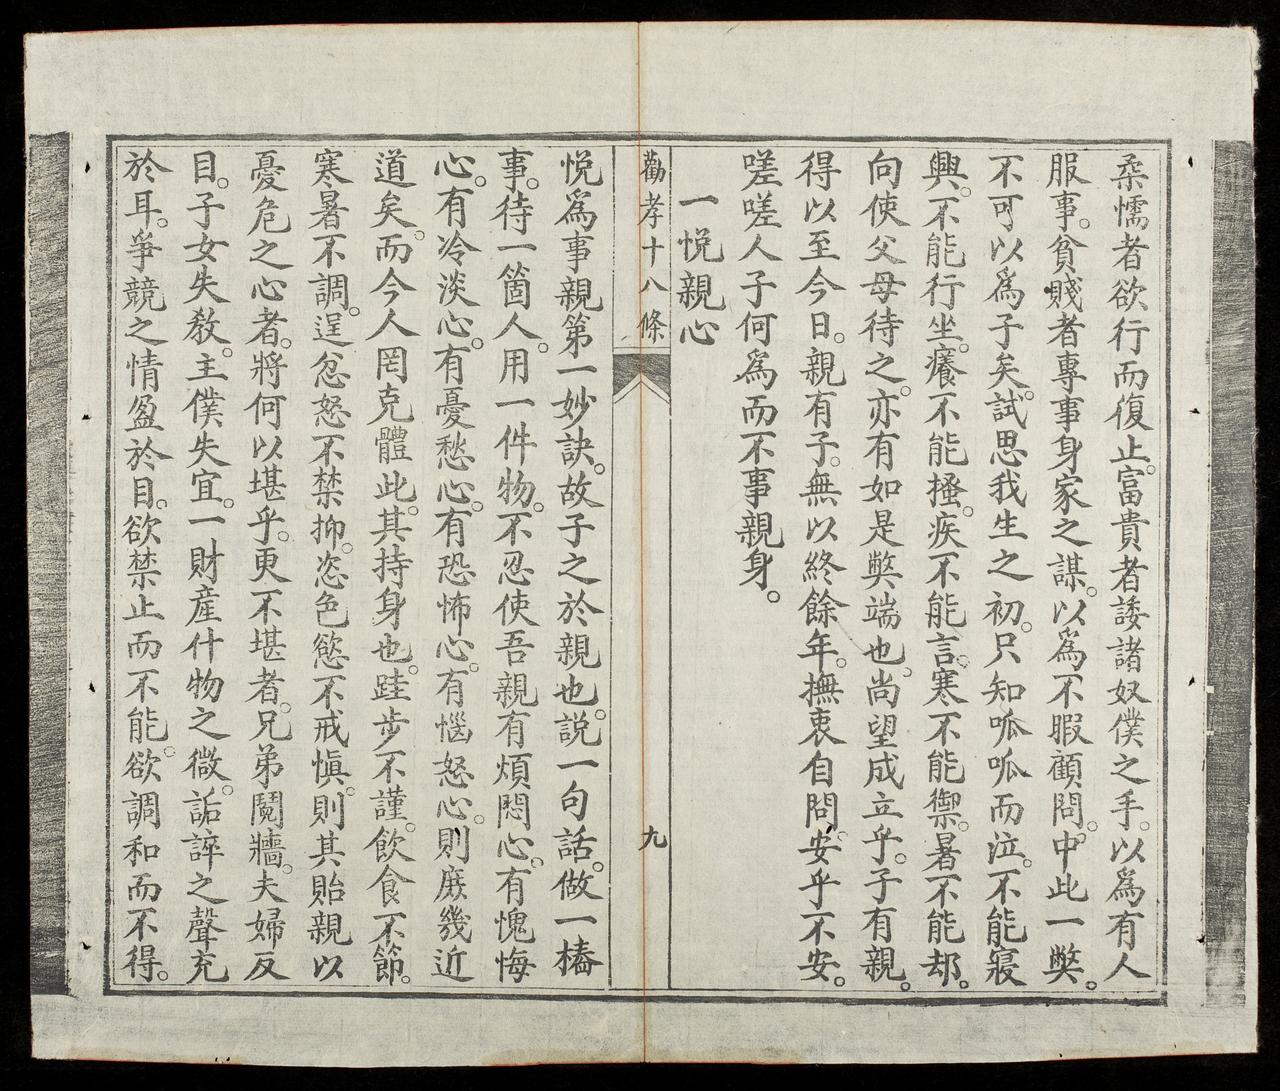 桑懦者欲行而復止。富貴者諉諸奴僕之手。以爲有人
服事。貧賤者專事身家之謀。以爲不暇顧問。中此一獘。
不可以爲子矣。試思我生之初。只知呱呱而泣。不能寢
興。不能行坐。癢不能搔。疾不能言。寒不能禦。暑不能却。
向使父母待之。亦有如是獘端也。尚望成立乎。子有親。
得以至今日。親有子。無以終餘年。撫衷自問。安乎不安。
嗟嗟人子何爲而不事親身。
一悅親心
勸孝十八條
九
悅爲事親第一妙訣。故子之於親也。説一句話。做一樁
事。待一箇人。用一件物。不忍使吾親有煩悶心。有愧悔
心。有冷淡心。有憂愁心。有恐怖心。有惱怒心。則庶幾近
道矣。而今人罔克體此。其持身也。跬步不謹。飲食不節。
寒暑不調。逞忿怒不禁抑。恣色慾不戒愼。則其貽親以
憂危之心者。將何以堪乎。更不堪者。兄弟鬩牆。夫婦反
目。子女失敎。主僕失宜。一財產什物之微。詬誶之聲充
於耳。爭競之情盈於目。欲禁止而不能。欲調和而不得。